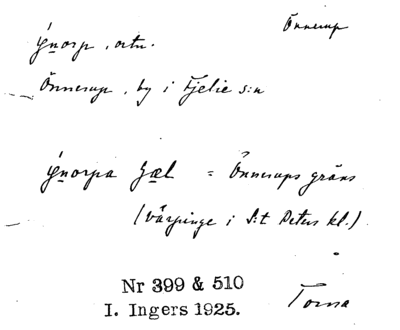 Önnerup
ýnorp, ortn.
Önnerup, by i Fjelie s:n
ýnorpa gæl = Önnerups gräns
(Värpinge i S:t Peters kl.)
Nr 399 & 510
I. Ingers 1925.
Torna